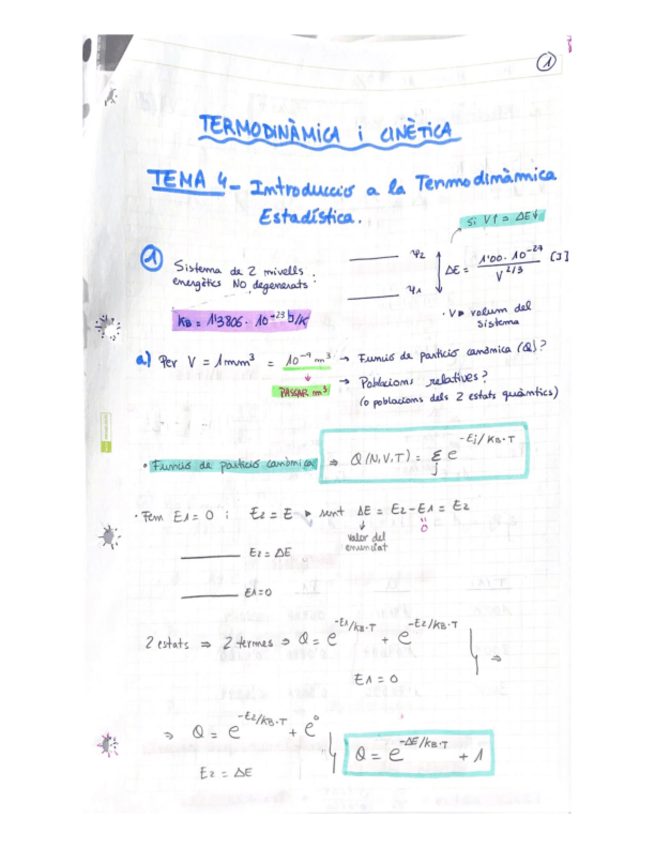 1
TERMODINÀMICA i CINÈTICA
TEMA 4 - Introducció a la Termodinàmica
Estadística.
Si V↑ ⇒ ΔE↓
① Sistema de 2 nivells
energètics NO degenerats:
Ψ2
Ψ1
ΔE = 1'00·10⁻²⁷ / V^(2/3) [J]
· V ⇒ volum del
sistema
KB = 1'3806·10⁻²³ J/K
a) Per V = 1mm³ = 10⁻⁹ m³ → Funció de partició canònica (Q)?
PASSAR m³
→ Poblacions relatives?
(o poblacions dels 2 estats quàntics)
· Funció de partició canònica ⇒ Q(N,V,T) = Σj e^(-Ej/KB·T)
· Fem E1=0 ; E2=E ▸ sent ΔE = E2-E1 = E2
valor del
enunciat
0
E2 = ΔE
E1=0
2 estats ⇒ 2 termes ⇒ Q = e^(-E1/KB·T) + e^(-E2/KB·T) ⇒
E1 = 0
⇒ Q = e^(-E2/KB·T) + e⁰
E2 = ΔE
Q = e^(-ΔE/KB·T) + 1